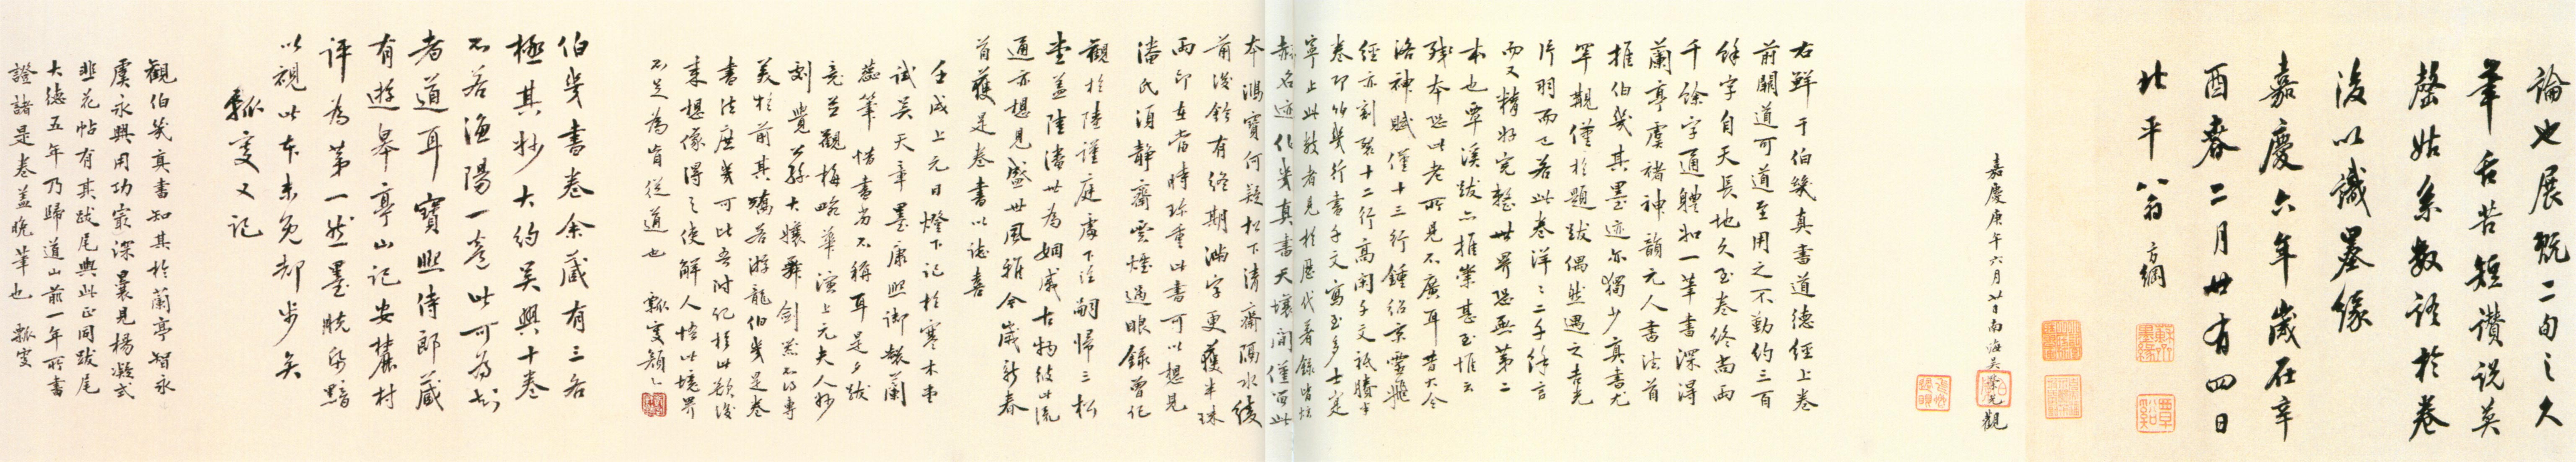 論也展翫二旬之久
筆舌苦短讚說莫
罄姑系數語於卷
後以識墨緣
嘉慶六年歲在辛
酉春二月廿有四日
北平八翁方綱
嘉慶庚午六月廿日南海吳榮光觀
右鮮于伯幾真書道德經上卷
前闕道可道至用之不勤約三百
餘字自天長地久至卷終尚兩
千餘字通體如一筆書深得
蘭亭虞褚神韻元人書法首
推伯幾其墨迹亦獨少真書尤
罕觀僅於題跋偶然遇之吉光
片羽而已若此卷洋洋二千餘言
而又精好完整世界恐無第二
本也覃溪跋亦推崇甚至惟云
殘本恐此老所見不廣耳昔大令
洛神賦僅十三行鍾紹京靈飛
經亦割裂十二行高閑千文祇賸半
卷即伯幾行書千文寫至多士寔
寧止此數者見於歷代著錄皆烜
赫名迹伯幾真書天壤間僅留此
本鴻寶何疑松下清齋隔水綾
前後鈐有終期滿字更獲半珠
兩印在當時珍重此書可以想見
潘氏須靜齋雲煙過眼錄曾化
觀於陸謹庭處下注嗣歸三松
堂蓋陸潘世為姻戚古物彼此流
通亦想見盛世風雅今歲新春
首獲是卷書以誌喜
壬戌上元日燈下記於寒木堂
試吳天章墨康熙御製蘭
蕊筆惜書劣不稱耳是夕跋
竟並觀梅畹華演上元夫人妙
劇覺公孫大孃舞劍器不得專
美於前其矯若游龍伯幾是卷
書法庶幾可比吾附記於此欲後
來想像得之使解人悟此境界
不足為盲從道也 瓢叟顏〻
伯幾書卷余藏有三各
極其妙大約吳興十卷
不若漁陽一卷此可為知
者道耳寶熙侍郎藏
有遊皋亭山記安麓村
評為第一然墨脫帋黯
以視此本未免却步矣
瓢叟又記
觀伯幾真書知其於蘭亭智永
虞永興用功㝡深曩見楊凝式
韭花帖有其跋尾與此正同跋尾
大德五年乃歸道山前一年所書
證諸是卷蓋晚筆也 瓢叟